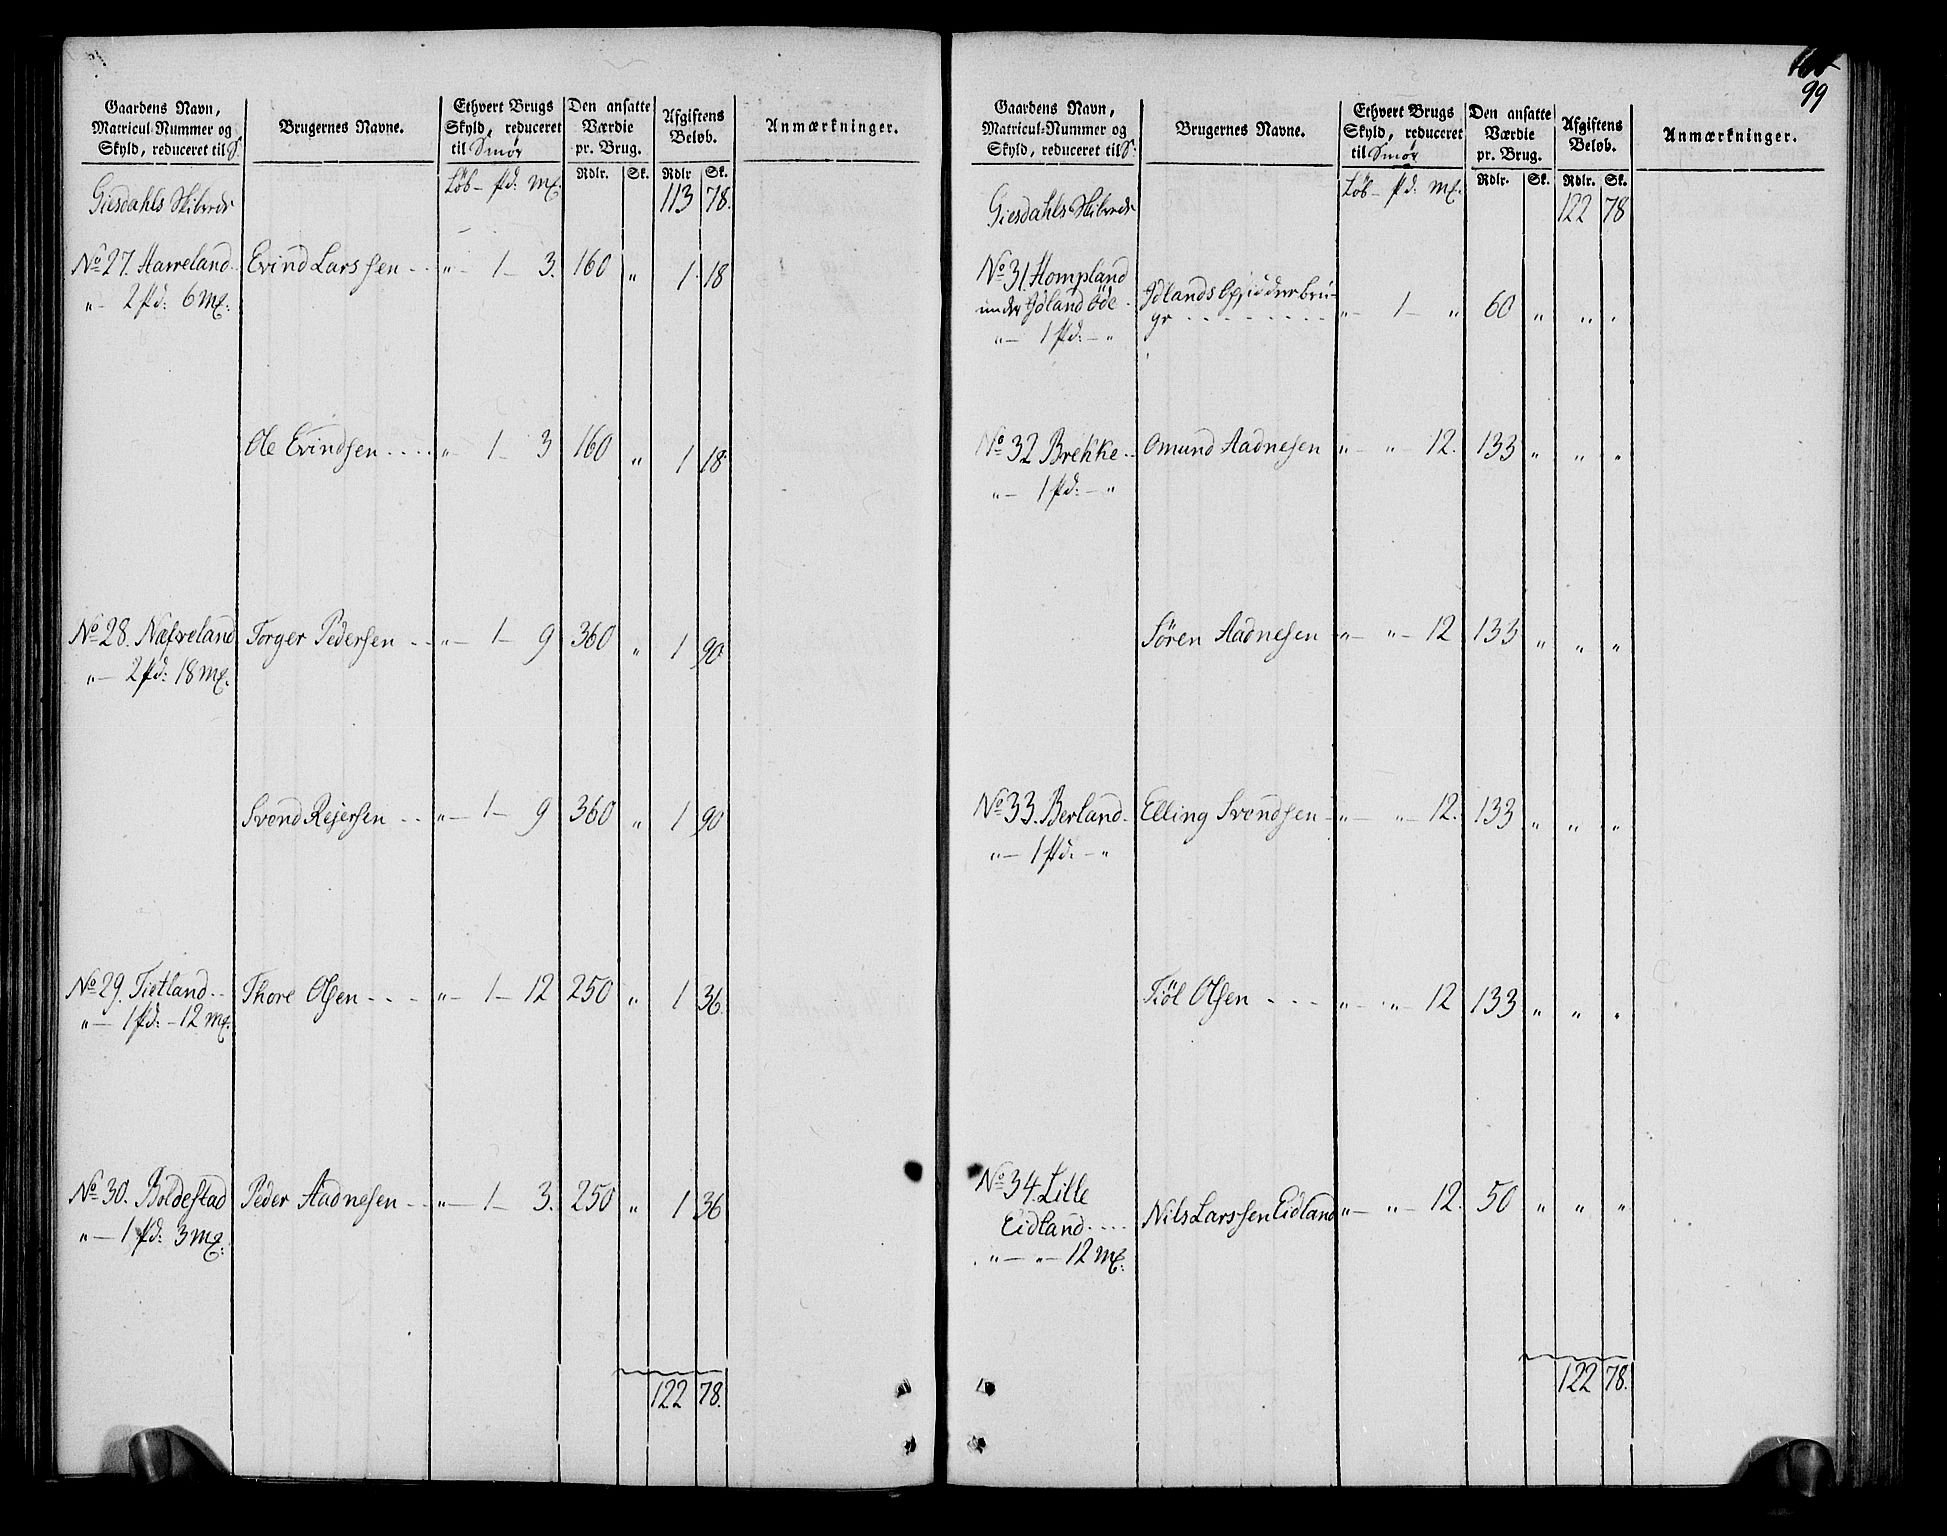 Gaardens Navn,
Matricul-Nummer og
Skyld, reduceret til S:
Brugernes Navne.
Ethvert Brugs
Skyld, reduceret
til Smør
Den ansatte
Værdie
pr. Brug.
Afgiftens
Beløb.
Anmærkninger.
Rdlr. Sk. Rdlr Sk.
Giesdahls Skibrede Löb - pd: mk. 113 78.
No 27. Harreland. Evind Larssen - - " - 1 - 3. 160 " 1 18
" - 2 pd: 6 mk:
Ole Evindsen . . . . " - 1 - 3 160 " 1 18.
No 28. Næfveland Torger Pedersen - - " - 1 - 9 360 " 1 90.
" - 2 pd: 18 mk.
Svend Rejersen - - " - 1 - 9 360 " 1 90
No 29. Tietland - - Thore Olsen - - - " - 1 - 12 250 " 1 36.
" - 1 pd: - 12 mk.
No 30. Boldestad Peder Aadnesen - - " - 1 - 3. 250 " 1 36
" - 1 pd: 3 mk.
122 78.
99
Gaardens Navn,
Matricul-Nummer og
Skyld, reduceret til S:
Brugernes Navne.
Ethvert Brugs
Skyld, reduceret
til Smør
Den ansatte
Værdie
pr. Brug.
Afgiftens
Beløb.
Anmærkninger.
Rdlr. Sk. Rdlr. Sk.
Giesdahls Skibrede Löb - pd: mk. 122 78
No 31. Hompland
under Idland öde - Idlands Opsidder bru-
" - 1 pd: - " ge - - - - - - - - " - 1 - " 60 " " "
No 32 Brekke - - Omund Aadnesen " - " - 12. 133 " " "
" - 1 pd: - "
Sören Aadnesen " - " - 12 133 " " "
No 33. Berland - Elling Svendsen - " - " - 12. 133 " " "
" - 1 pd: - "
Tiöl Olsen - - - " - " - 12 133 " " "
No 34. Lille
Eidland - - - - Nils Larssen Eidland " - " - 12. 50 " " "
" - " - 12 mk:
122 78.